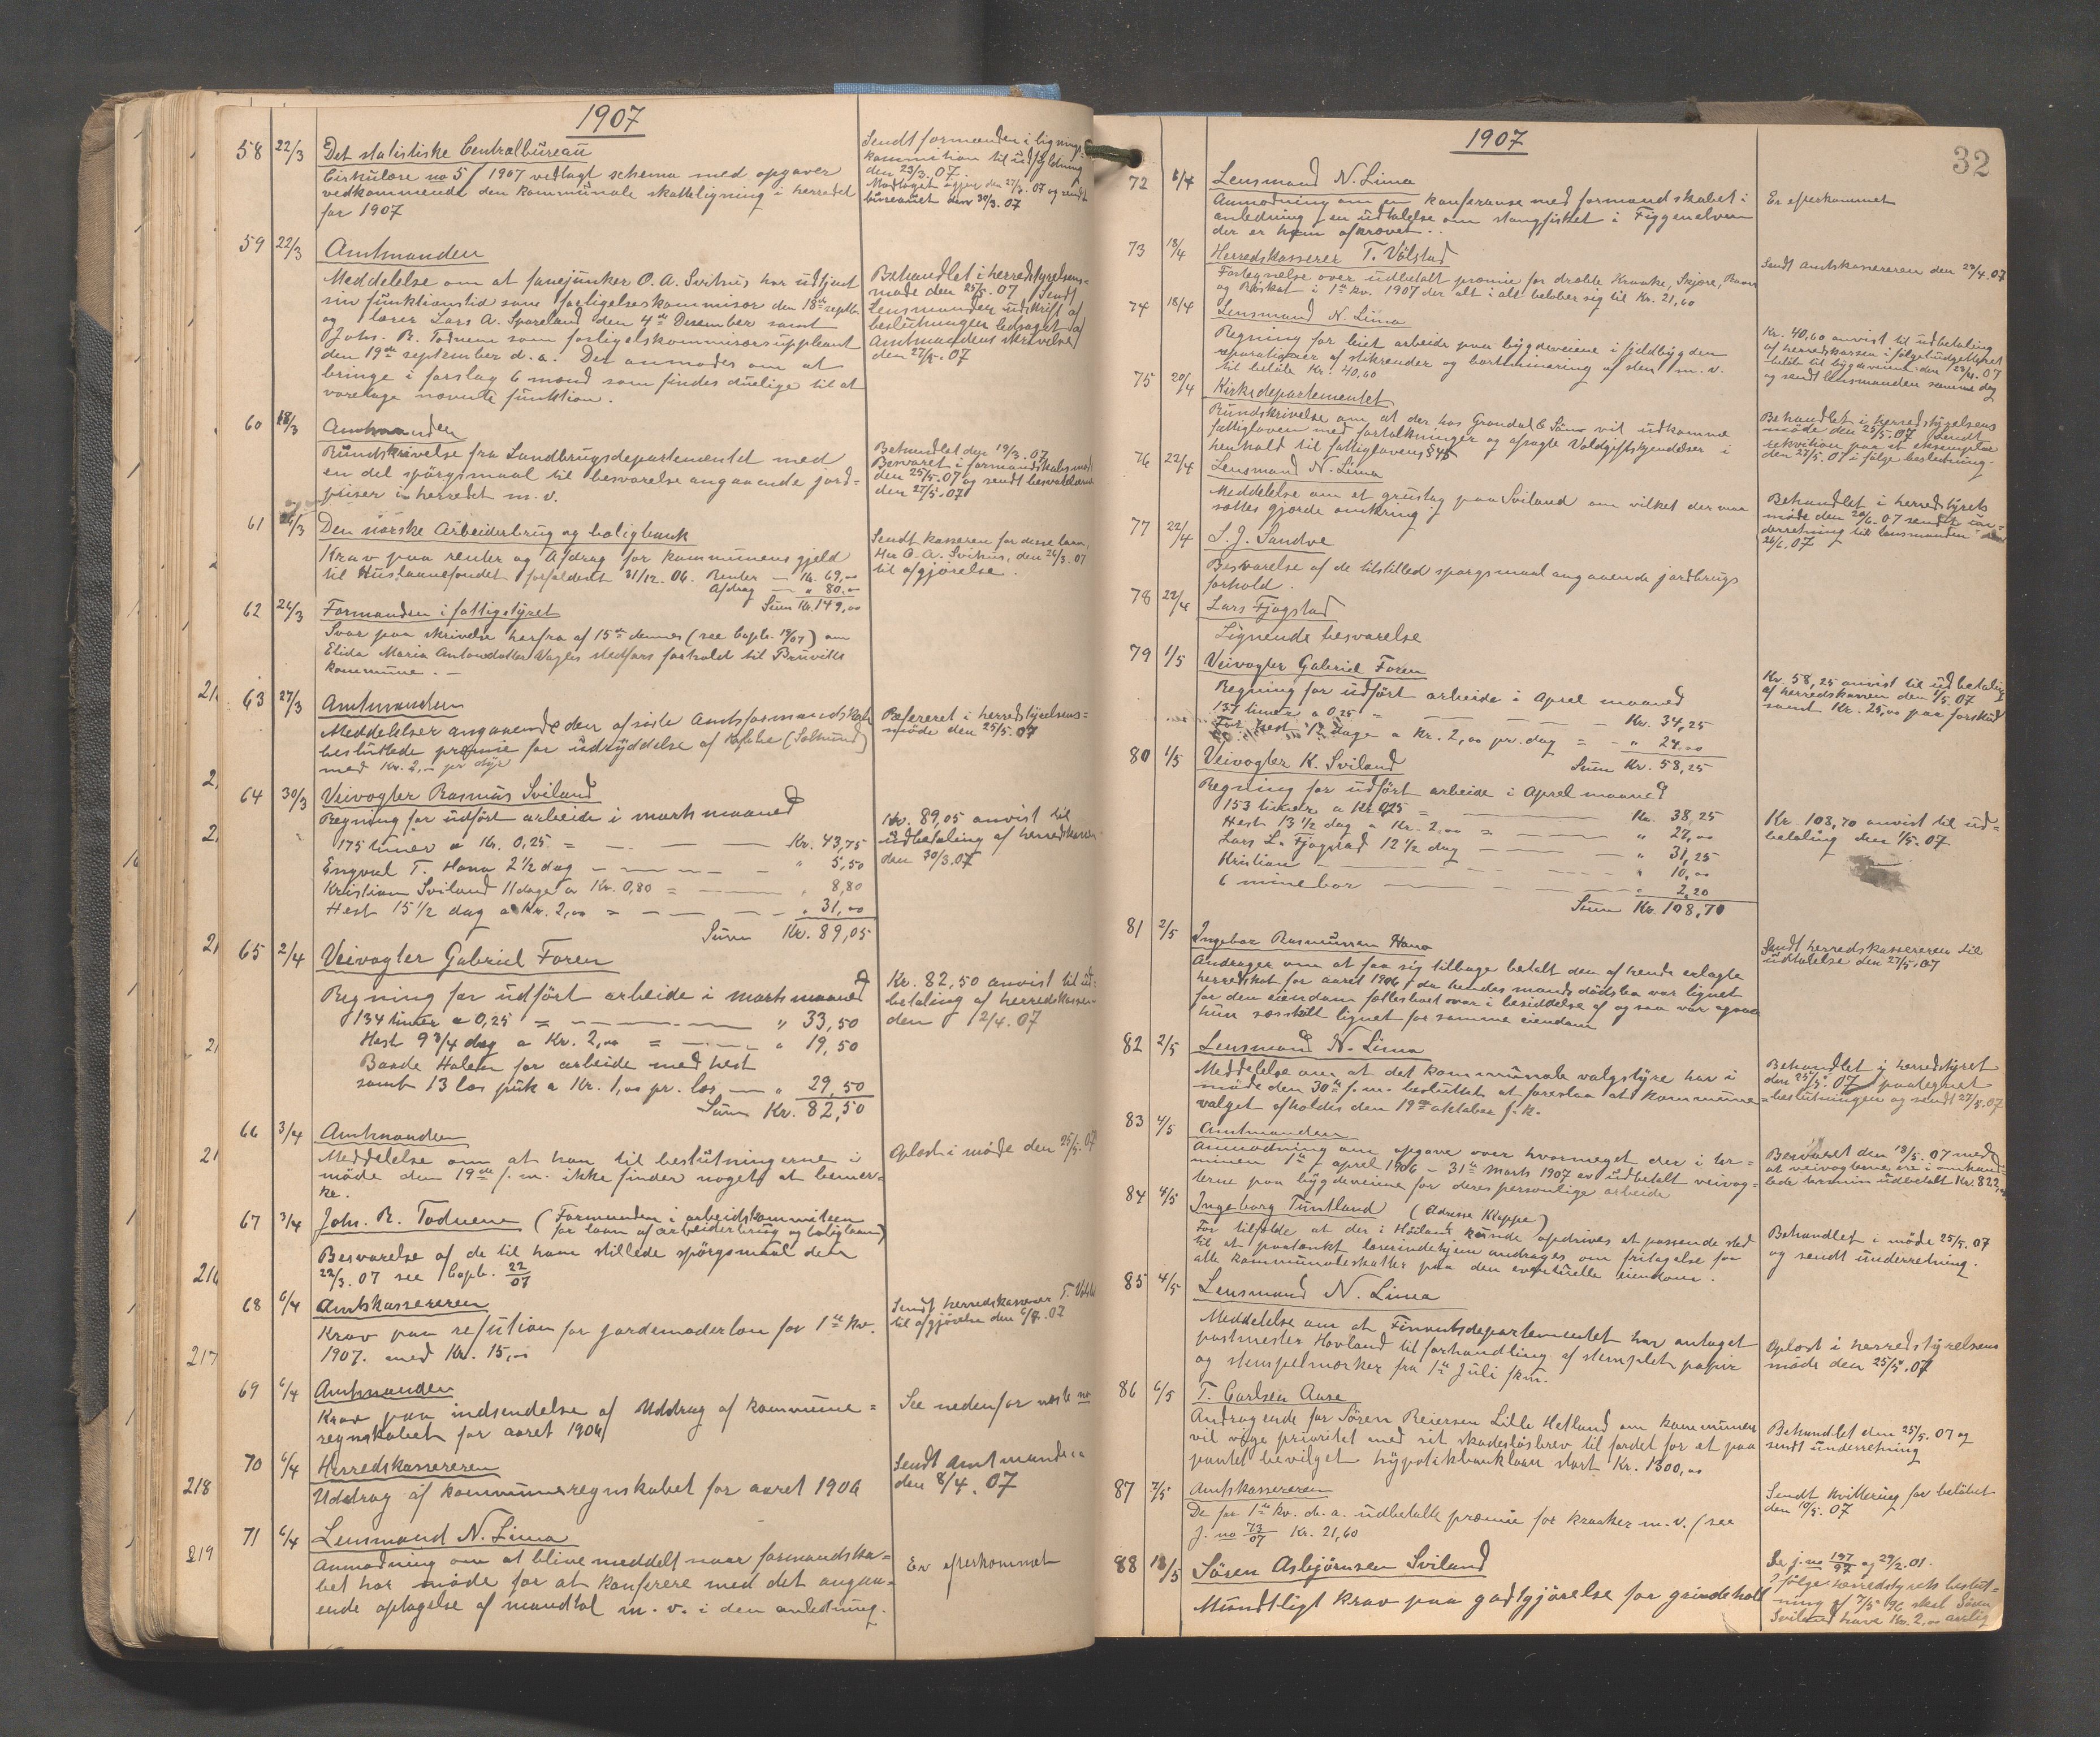 1907
58 22/3 Det statistiske Centralbureau
Cirkulære no 5/1907 vedlagt schema med opgaver
vedkommende den kommunale skatteligning i herredet
for 1907
Sendt formanden i lignings-
kommission til udfyldning
den 23/3. 07.
Modtaget igjen den 27/3. 07 og sendt
bureauet den 30/3. 07
59 22/3 Amtmanden
Meddelelse om at fanejunker O. A. Svihus har udtjent
sin funktionstid som forligelseskommisær den 18de septbr.
og lærer Lars A. Spareland den 4de Desember samt
Johs. R. Todnem som forligelskommisærsuppleant
den 19de september d. a. Der anmodes om at
bringe i forslag 6 mænd som findes duelige til at
varetage nævnte funktion.
Behandlet i herredstyrelsens-
møde den 25/5. 07 Sendt
Lensmanden udskrift af
beslutningen ledsaget af
Amtmandens skrivelse
den 27/5. 07
60 18/3 Amtmanden
Rundskrivelse fra Landbrugsdepartementet med
en del spörgsmaal til besvarelse angaaende jord-
priser i herredet m. v.
Behandlet den 19/3. 07
Besvaret i formandskabsmøde
den 25/5. 07 og sendt
den 27/5. 07
61 26/3 Den norske Arbeiderbrug og boligbank
Krav paa renter og Afdrag for kommunens gjeld
til Huslaanefondet forfaldent 31/12. 06. Renter — Kr. 69,00
Afdrag — " 80,00
Sum Kr. 149,00
Sendt kasseren for disse laan
Hr O. A. Svihus, den 26/3. 07
til afgjørelse.
62 26/3 Formanden i fattigstyret
Svar paa skrivelse herfra af 15de dennes (see Copb. 19/07) om
Elida Maria Antondatter Vagles stedfars forhold til Bruvik
kommune. —
63 27/3 Amtmanden
Meddelelser angaaende den af siste Amtsformandskab
besluttede præmie for udryddelse af Kobbe (Sælhund)
med Kr. 2,- pr dyr
Refereret i herredstyrelsens-
møde den 25/5. 07
64 30/3 Veivogter Rasmus Sviland
Regning for udfört arbeide i marts maaned
175 timer a Kr. 0,25 = — — — Kr. 43,75
Engval T. Hana 2 1/2 dag — — — " 5,50
Kristian Sviland 11 dage a Kr. 0,80 = — " 8,80
Hest 15 1/2 dag a Kr. 2,00 = — — — " 31,00
Sum Kr. 89,05
Kr. 89,05 anvist til
udbetaling af herredskassen
den 30/3. 07
65 2/4 Veivogter Gabriel Foren
Regning for udfört arbeide i marts maaned
134 timer a 0,25 = — — — " 33,50
Hest 9 3/4 dag a Kr. 2,00 = — — " 19,50
Baade Halen for arbeide med hest
samt 13 læs puk a Kr. 1,00 pr. læs — " 29,50
Sum Kr. 82,50
Kr. 82,50 anvist til ud-
betaling af herredskassen
den 2/4. 07
66 3/4 Amtmanden
Meddelelse om at han til beslutningerne i
möde den 19de f. m. ikke finder noget at bemer-
ke.
Oplæst i møde den 25/5. 07
67 3/4 Johs. R. Todnem (Formanden i arbeidskommiteen
for laan af arbeiderbrug og boliglaan)
Besvarelse af de til ham stillede spörgsmaal den
22/3. 07 see Copb. 22/07
68 6/4 Amtskassereren
Krav paa refution for jordemoderløn for 1ste kv.
1907. med Kr. 15,00
Sendt herredskasserer T. Vølstad
til afgjørelse den 6/4. 07
69 6/4 Amtmanden
Krav paa indsendelse af Uddrag af kommune =
regnskabet for aaret 1906
See nedenfor næste no
70 6/4 Herredskassereren
Uddrag af kommuneregnskabet for aaret 1906
Sendt Amtmanden
den 8/4. 07
71 6/4 Lensmand N. Lima
Anmodning om at blive meddelt naar formandska-
bet har møde for at konferere med det angaa-
ende optagelse af mandtal m. v. i den anledning.
Er efterkommet
217
218
219
32
1907
72 8/4 Lensmand N. Lima
Anmodning om en konferanse med formandskabet i
anledning en udtalelse om stangfisket i Figgenelven
der er ham afkrævet..
Er efterkommet
73 18/4 Herredskasserer T. Völstad
Fortegnelse over udbetalt præmie for dræbte Kraake, Skjære, Ravn
og Röskat i 1ste kv. 1907 der alt i alt beløber sig til Kr. 21,60
Sendt Amtskassereren den 23/4. 07
74 18/4 Lensmand N. Lima
Regning for leiet arbeide paa bygdeveiene i fjeldbygden
reparationer af stikrender og bortminering af sten m. v.
til beløb Kr. 40,60
Kr. 40,60 anvist til udbetaling
af herredskassen i følge budgettert
beløb til bygdeveiene den 23/4. 07
og sendt lensmanden samme dag
75 20/4 Kirkedepartementet
Rundskrivelse om at der hos Grøndal & Søn vil udkomme
fattigloven med fortolkninger og afsagte Voldgiftskjendelser i
henhold til fattiglovens § 45
Behandlet i herredstyrelsens
møde den 25/5. 07 Sendt
rekvition paa et eksemplar
den 27/5. 07 i følge beslutning.
76 22/4 Lensmand N. Lima
Meddelelse om et grustag paa Sviland om vilket der maa
sættes gjærde omkring.
Behandlet i herredstyrets
møde den 20/6. 07 sendt un-
derretning til lensmanden den
26/6. 07
77 22/4 S. J. Sandve
Besvarelse af de tilstilled spørgsmaal angaaende jordbrugs
forhold.
78 22/4 Lars Fjogstad
Lignende besvarelse
79 1/5 Veivogter Gabriel Foren
Regning for udfört arbeide i Aprel maaned
137 timer a 0,25 = — — — Kr. 34,25
For hest 12 dage a Kr. 2,00 pr. dag = — " 24,00
Sum Kr. 58,25
Kr. 58,25 anvist til udbetaling
af herredskassen den 1/5. 07
samt Kr. 25,00 paa forskud
80 1/5 Veivogter K. Sviland
Regning for udfört arbeide i Aprel maaned
153 timer a Kr 0,25 = — — Kr. 38,25
Hest 13 1/2 dag a Kr. 2,00 = — — " 27,00
Lars L. Fjogstad 12 1/2 dag — — — " 31,25
Kristian — — — — " 10,00
6 minebor — — — " 2,20
Sum Kr. 108,70
Kr. 108,70 anvist til ud=
betaling den 1/5. 07
81 2/5 Ingebor Rasmussen Hana
Andrager om at faa sig tilbage betalt den af hende erlagte
herredskat for aaret 1906, da hendes mands dødsbo var lignet
for den eiendom fællesboet var i besiddelse af og saa var ogsaa
hun særskilt lignet for samme eiendom
Sendt herredskassereren til
udtalelse den 27/5. 07
82 2/5 Lensmand N. Lima
Meddelelse om at det kommunale valgstyre har i
møde den 30te f. m. besluttet at foreslaa at kommune
valget afholdes den 19de oktober f. k.
Behandlet i herredstyret
den 25/5. 07 paategnet
beslutningen og sendt 27/5. 07
83 4/5 Amtmanden
Anmodning om opgave over hvormeget der i ter=
minen 1ste aprel 1906 — 31te Marts 1907 er udbetalt veivog=
terne paa bygdeveiene for deres personlige arbeide
Besvaret den 18/5. 07 med
at veivogterne ere i omhan-
lede termin udbetalt Kr. 822,
84 4/5 Ingeborg Tuntland (Adresse Kleppe)
For tilfælde at der i Høiland kunde opdrives et passende sted
til et paatænkt lærerindehjem andrages om fritagelse for
alle kommuneskatter paa den eventuelle eiendom.
Behandlet i møde 25/5. 07
og sendt underretning.
85 4/5 Lensmand N. Lima
Meddelelse om at Finantsdepartementet har antaget
postmester Hovland til forhandling af stemplet papir
og stempelmærker fra 1ste Juli fkm.
Oplæst i herredstyrelsens
møde den 25/5. 07
86 6/5 T. Carlsen Aase
Andragende for Søren Reiersen Lille Hetland om kommunen
vil vige prioritet med sit skadesløsbrev til fordel for et paa
pantet bevilget hypotekbanklaan stort Kr. 1300,00
Behandlet den 25/5. 07 og
sendt underretning
87 7/5 Amtskassereren
De for 1ste kv. d. a. udbetalte præmie for kraaker m. v. (see
J. no 73/07 Kr. 21,60
Sendt kvittering for beløbet
den 10/5. 07
88 18/5 Sören Asbjörnsen Sviland
Mundtligt krav paa godtgjørelse for grindehold
Se j. no 197/97 og 29/2. 01.
I følge herredstyrets beslut=
ning af 7/5 96 skal Søren
Sviland have Kr. 2,00 aarlig